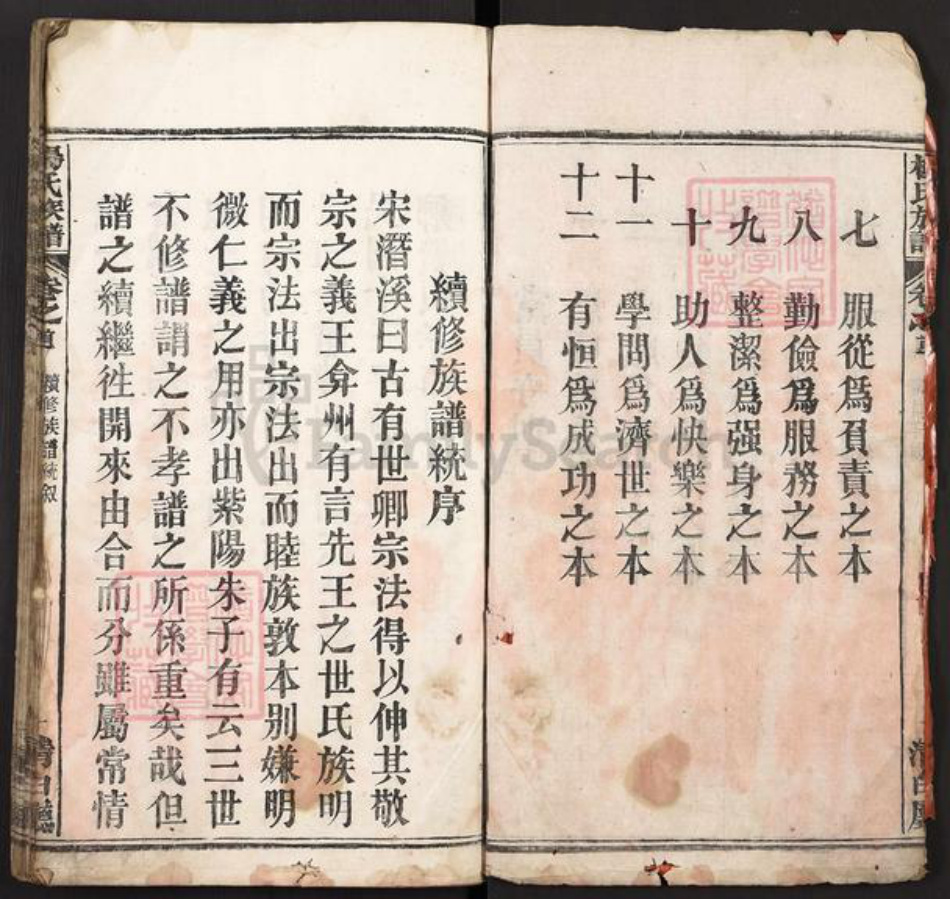 七　服從爲負責之本
八　勤儉爲服務之本
九　整潔爲强身之本
十　助人爲快樂之本
十一　學問爲濟世之本
十二　有恒爲成功之本
續修族譜統序
宋潛溪曰古有世卿宗法得以伸其敬
宗之義王弇州有言先王之世氏族明
而宗法出宗法出而睦族敦本别嫌明
微仁義之用亦出紫陽朱子有云三世
不修譜謂之不孝譜之所係重矣哉但
譜之續繼徃開來由合而分雖屬常情
楊氏族譜
卷之首
續修族譜統叙
清白
楊氏族譜
卷之首
清白
FamilySearch